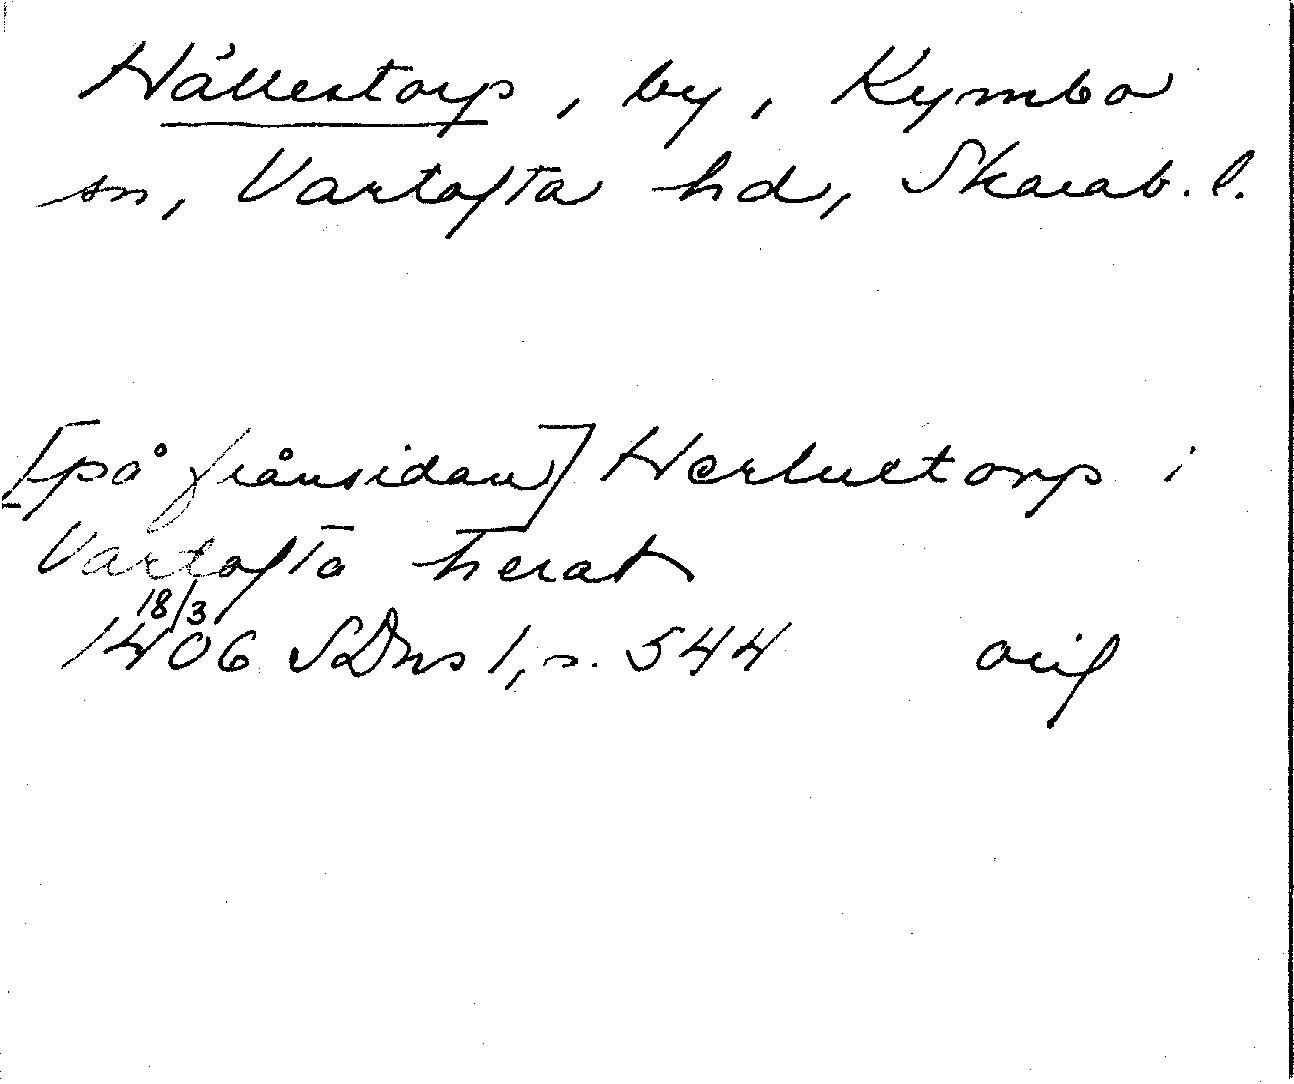 Hållestorp, by, Kymbo
sn, Vartofta hd, Skarab. l.
[på frånsidan] Herlucetorp i
Vartofta herat
18/3
1406 SDns 1, s. 544 orig